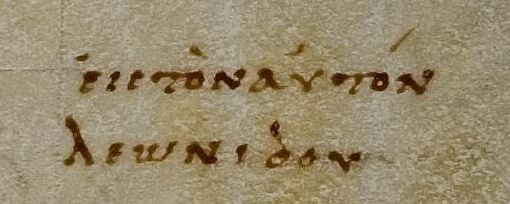 εἰς τὸν αὐτὸν
λεωνίδου